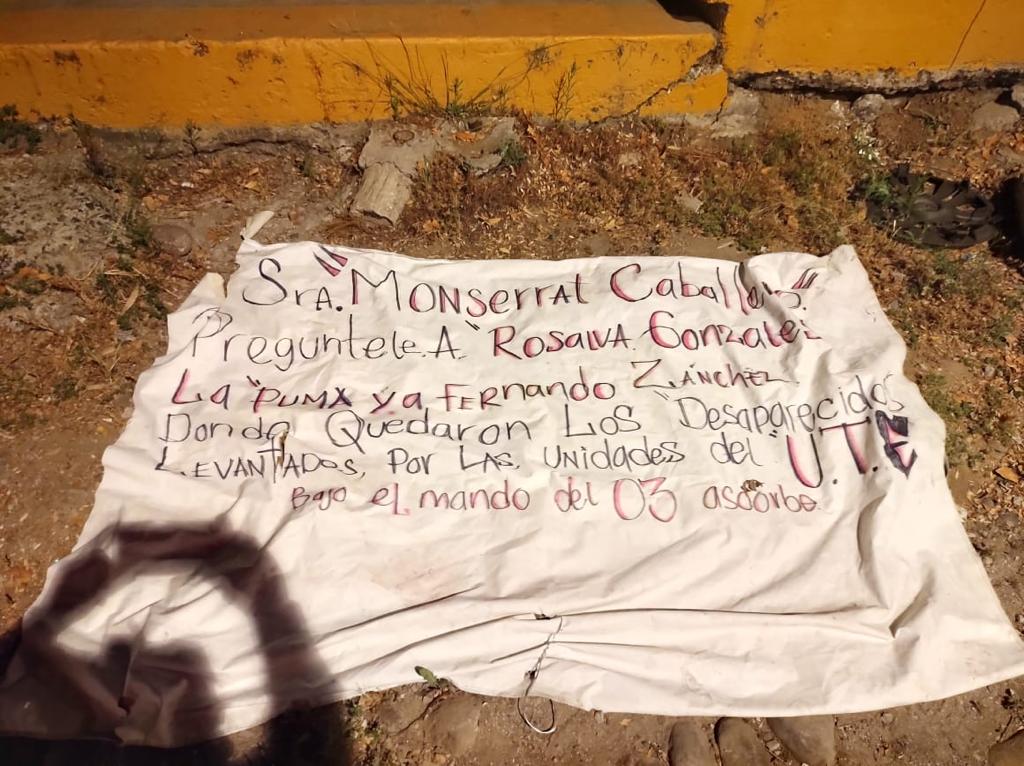 SrA. "Monserrat Caballero"
Preguntele A "Rosalva Gonzalez
La "PUMA y a Fernando Zánchez
Donde Quedaron Los "Desaparecidos
LEVANTADOS, Por LAS, UNIDADES del "U.T.E
Bajo el mando del 03 ascorbe.